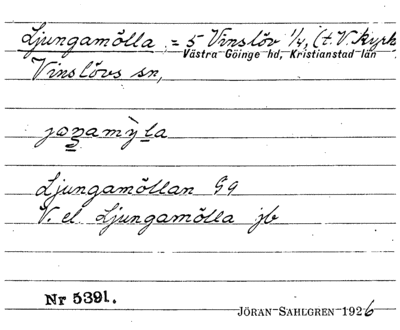 Ljungamölla = 5 Vinslöv 1/4, (t. V. Kyrk
Västra Göinge hd, Kristianstad län
Vinslövs sn,
joŋamỳla
Ljungamöllan Gg
V. el. Ljungamölla jb
Nr 5391.
JÖRAN SAHLGREN 1926